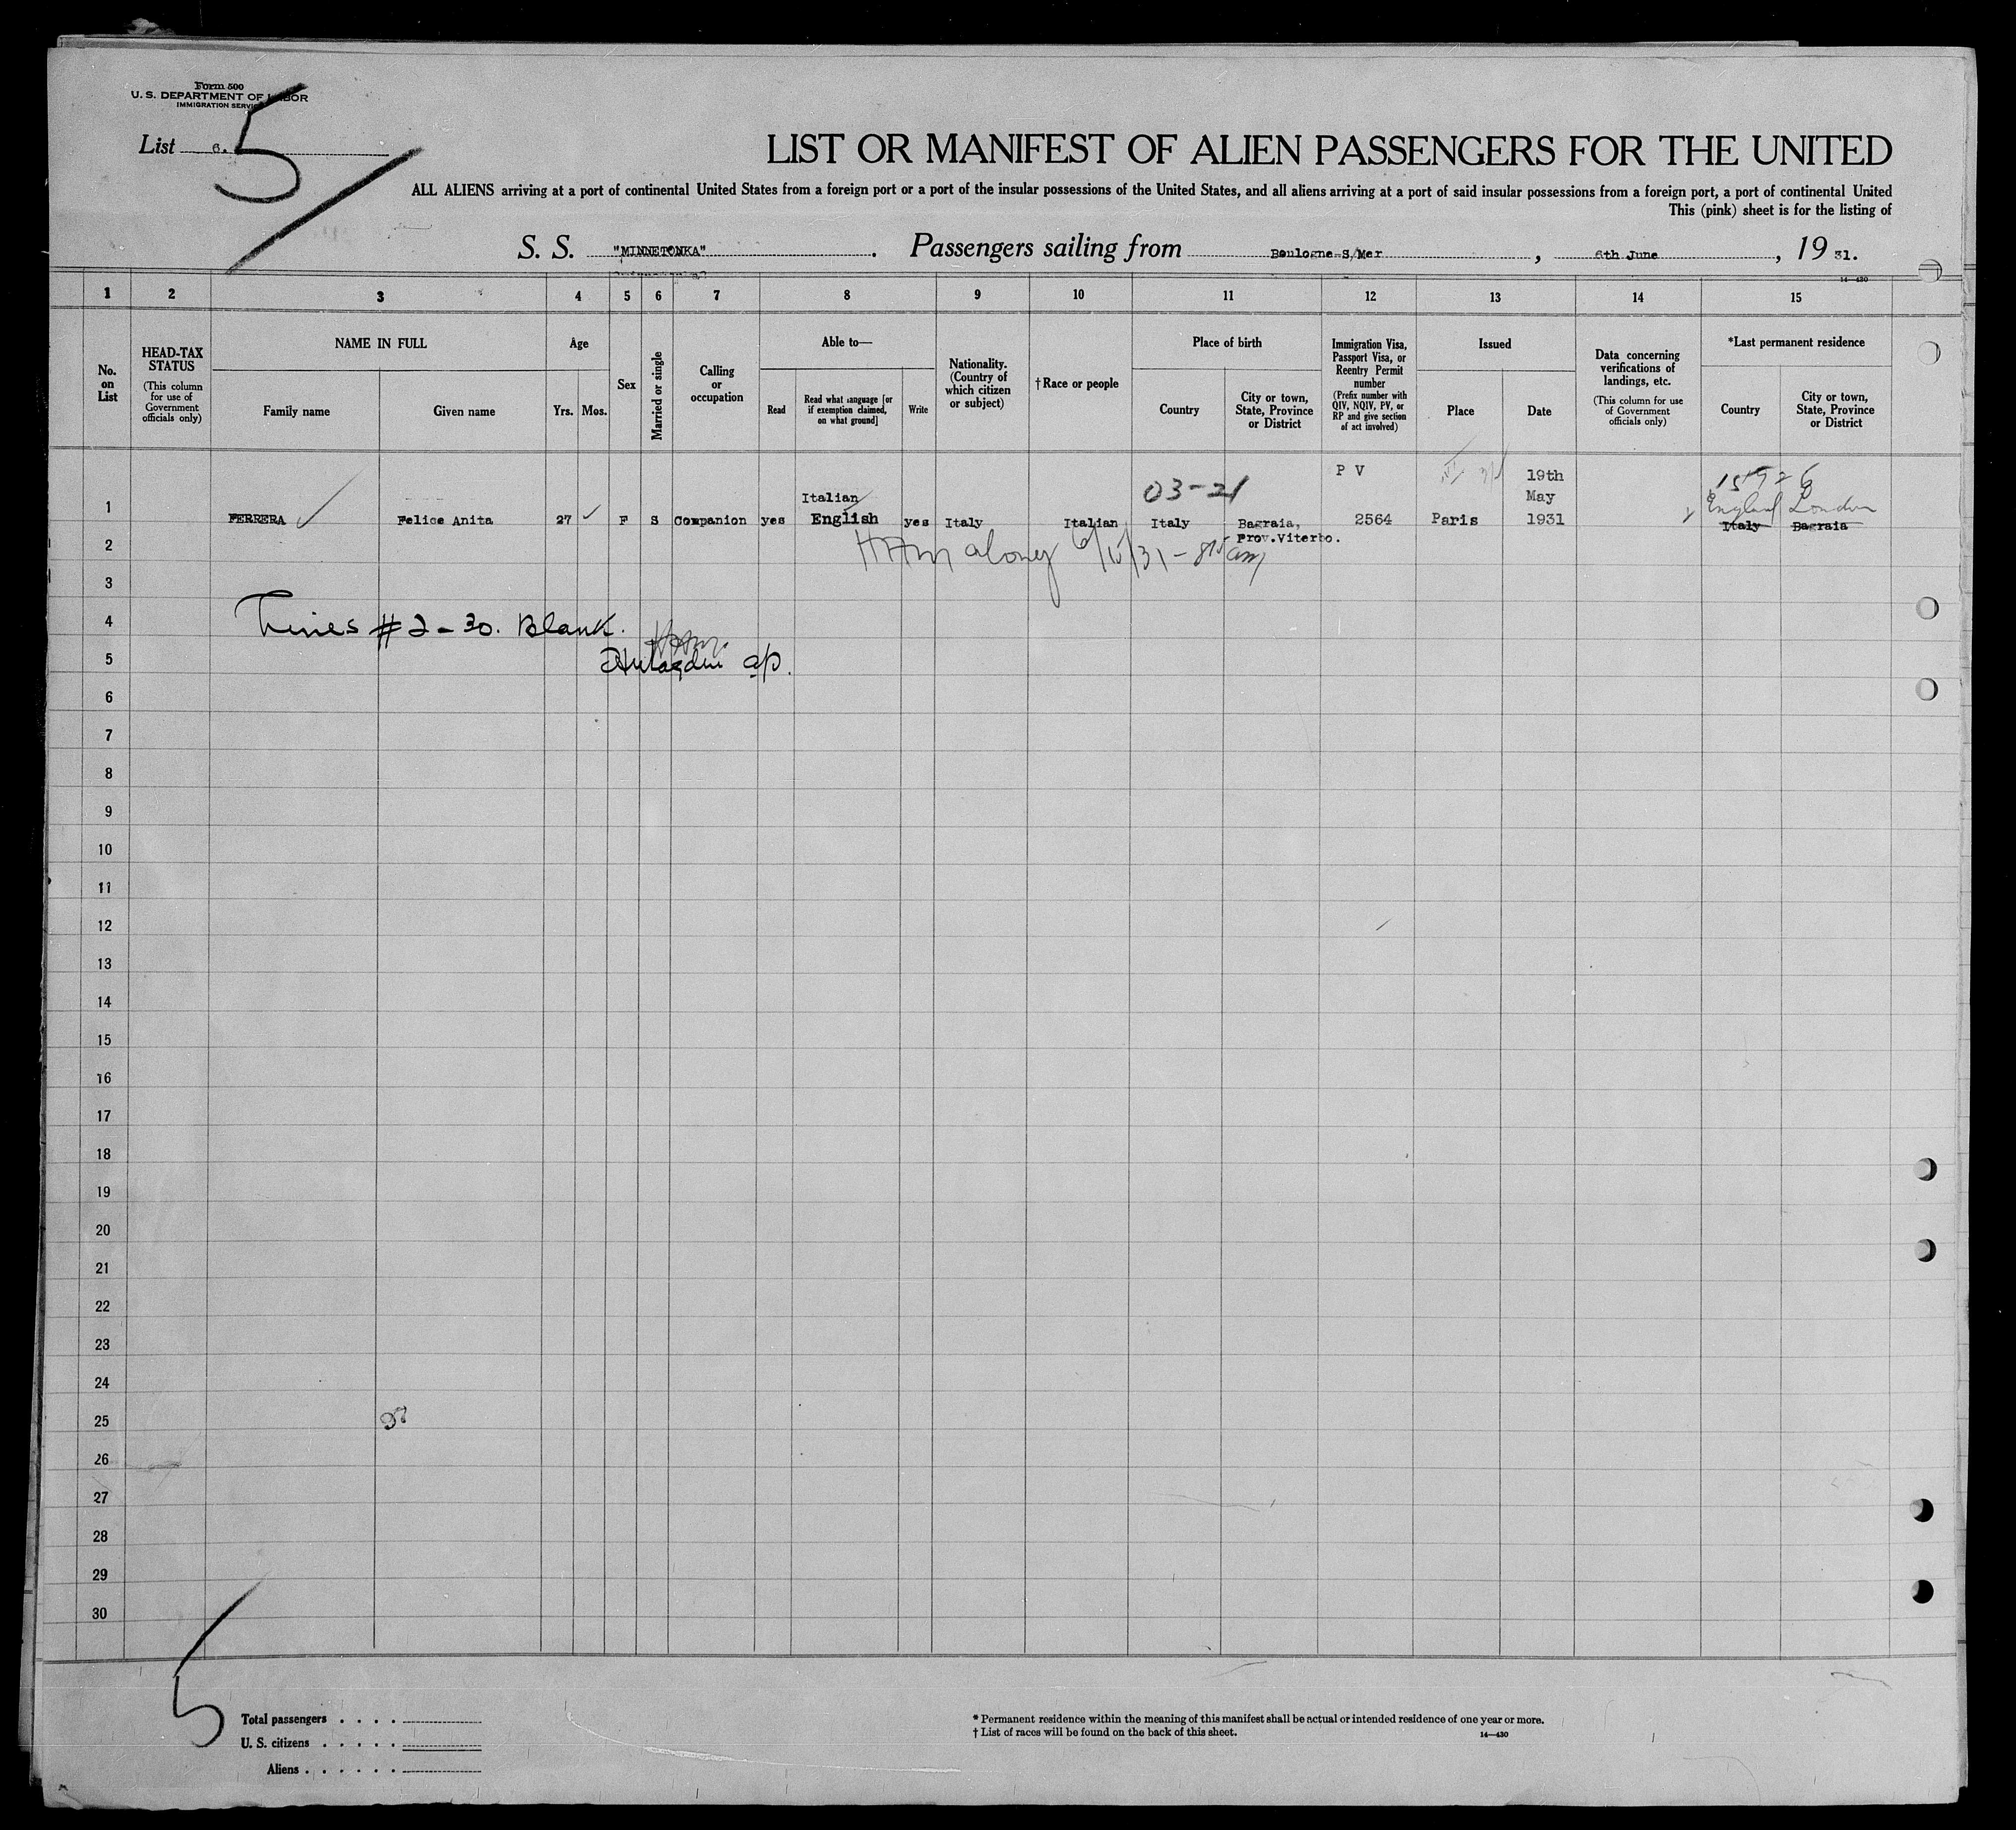 Form 500
U. S. DEPARTMENT OF LABOR
IMMIGRATION SERVICE
List 6.
5
LIST OR MANIFEST OF ALIEN PASSENGERS FOR THE UNITED
ALL ALIENS arriving at a port of continental United States from a foreign port or a port of the insular possessions of the United States, and all aliens arriving at a port of said insular possessions from a foreign port, a port of continental United
This (pink) sheet is for the listing of
S. S. "MINNETONKA". Passengers sailing from Boulogne-S/Mer, 6th June, 19 31.
14—430
1 2 3 4 5 6 7 8 9 10 11 12 13 14 15
No. on List
HEAD-TAX STATUS (This column for use of Government officials only)
NAME IN FULL
Family name
Given name
Age
Yrs.
Mos.
Sex
Married or single
Calling or occupation
Able to—
Read
Read what language [or if exemption claimed, on what ground]
Write
Nationality. (Country of which citizen or subject)
†Race or people
Place of birth
Country
City or town, State, Province or District
Immigration Visa, Passport Visa, or Reentry Permit number (Prefix number with QIV, NQIV, PV, or RP and give section of act involved)
Issued
Place
Date
Data concerning verifications of landings, etc. (This column for use of Government officials only)
*Last permanent residence
Country
City or town, State, Province or District
P V
19th
03-21
May
Italian
England London
1 FERRERA Felice Anita 27 F S Companion yes English yes Italy Italian Italy Bagraia, 2564 Paris 1931 Italy Bagraia
Prov.Viterbo.
2
6/15/31 - 815 am
3
4
Lines # 2 - 30. Blank.
5
6
7
8
9
10
11
12
13
14
15
16
17
18
19
20
21
22
23
24
25
26
27
28
29
30
5
Total passengers . . . .
U. S. citizens . . . . .
Aliens . . . . . .
* Permanent residence within the meaning of this manifest shall be actual or intended residence of one year or more.
† List of races will be found on the back of this sheet.
14—430